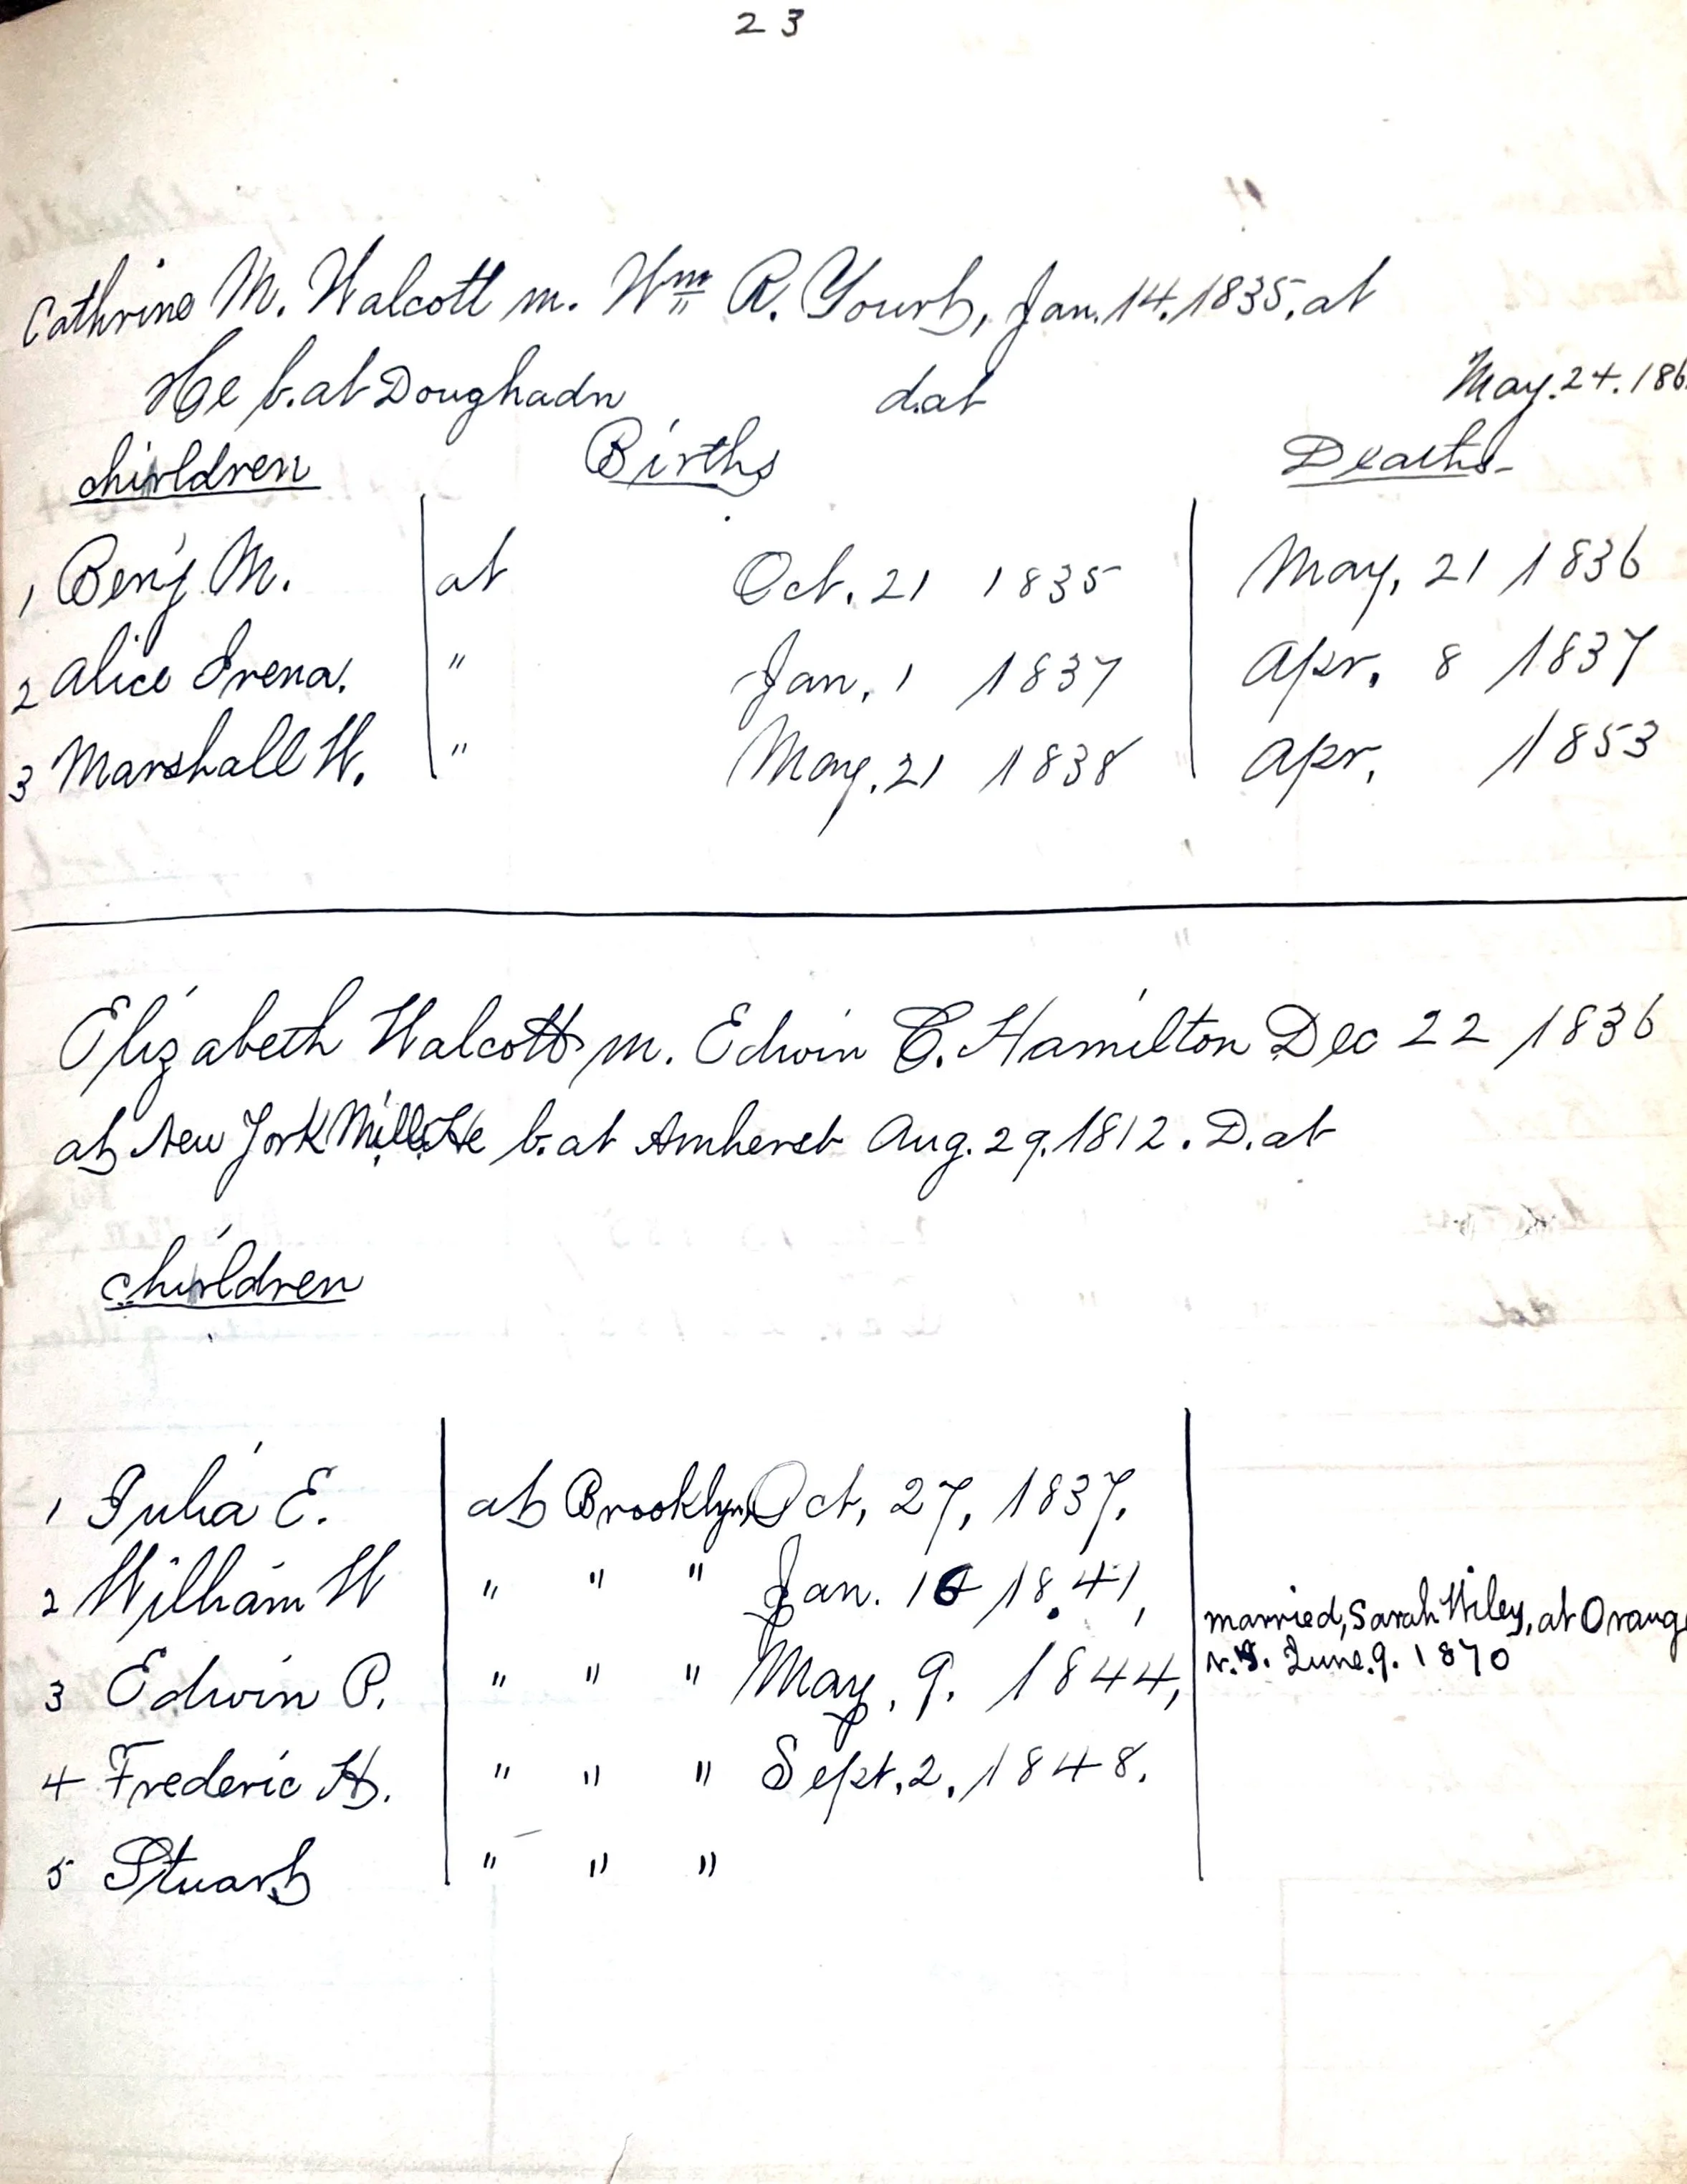 23
Cathrine M. Walcott m. Wm R. Yourt, Jan. 14. 1835. at
He b. at Doughadn d. at May. 24. 186
children Births Deaths
1 Benj M. at Oct. 21 1835 May, 21 1836
2 Alice Irena. " Jan, 1 1837 Apr, 8 1837
3 Marshall W. " May. 21 1838 Apr, 1853
Elizabeth Walcott m. Edwin C. Hamilton Dec 22 1836
at New York Mills He b. at Amherst Aug. 29. 1812. D. at
children
1 Julia E. at Brooklyn, Oct, 27, 1837.
2 William W " " " Jan. 16 1841, married, Sarah Wiley, at Orange
N.J. June. 9. 1870
3 Edwin P. " " " May. 9. 1844,
4 Frederic H. " " " Sept. 2. 1848.
5 Stuart " " "